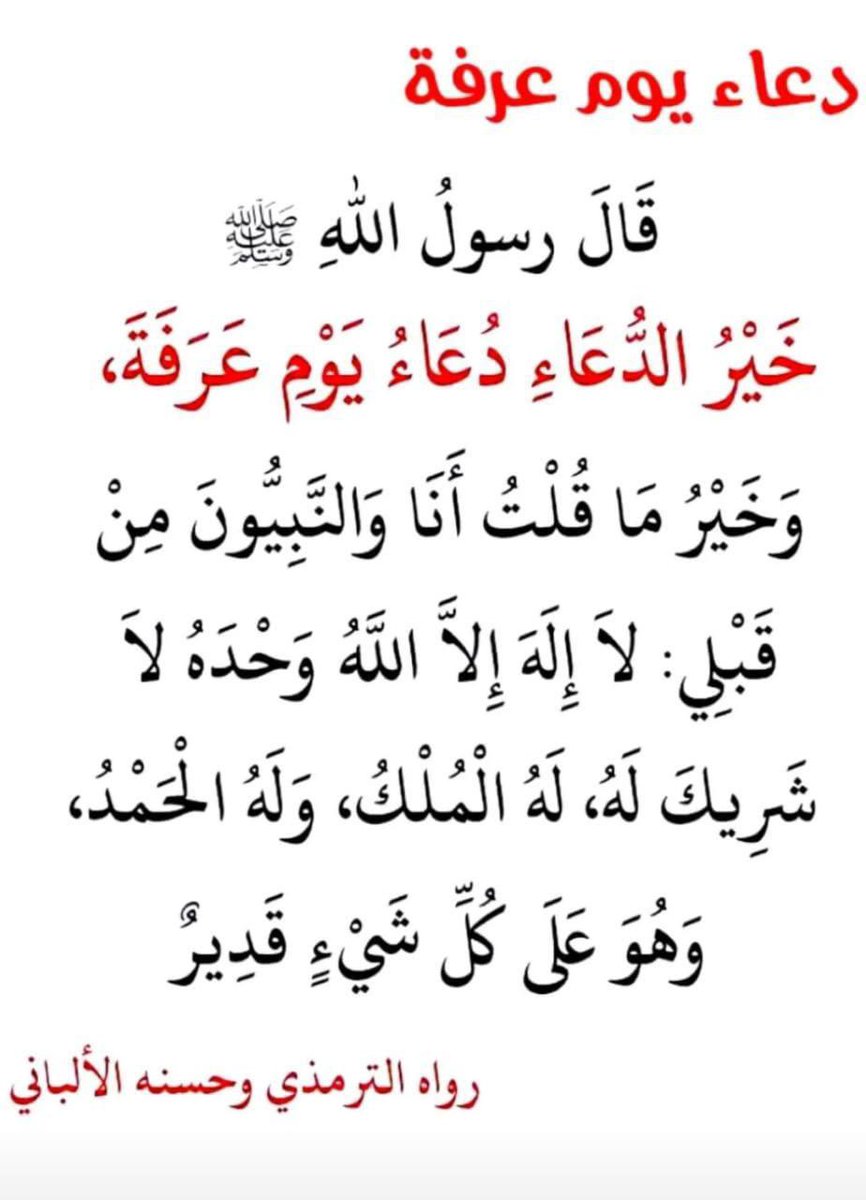 دعاء يوم عرفة
قَالَ رسولُ اللهِ ﷺ
خَيْرُ الدُّعَاءِ دُعَاءُ يَوْمِ عَرَفَةَ،
وَخَيْرُ مَا قُلْتُ أَنَا وَالنَّبِيُّونَ مِنْ
قَبْلِي: لاَ إِلَهَ إِلاَّ اللَّهُ وَحْدَهُ لاَ
شَرِيكَ لَهُ، لَهُ الْمُلْكُ، وَلَهُ الْحَمْدُ،
وَهُوَ عَلَى كُلِّ شَيْءٍ قَدِيرٌ
رواه الترمذي وحسنه الألباني